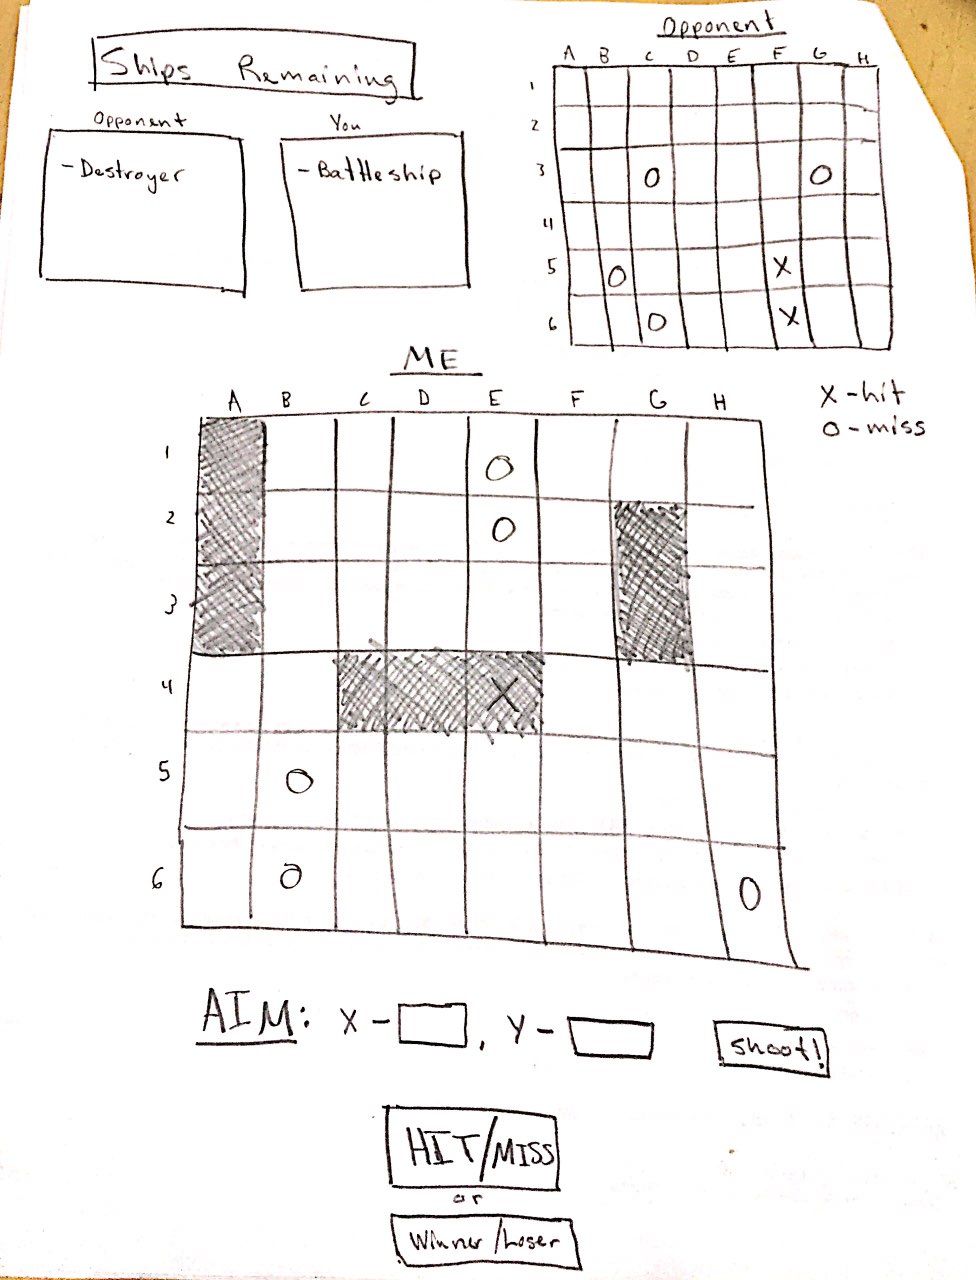 Ships Remaining
Opponent
- Destroyer
You
- Battleship
Opponent
A B C D E F G H
1
2
3 O O
4
5 O X
6 O X
X - hit
O - miss
ME
A B C D E F G H
1 O
2 O
3
4 X
5 O
6 O O
AIM: X - , Y -
Shoot!
HIT/MISS
or
Winner/Loser